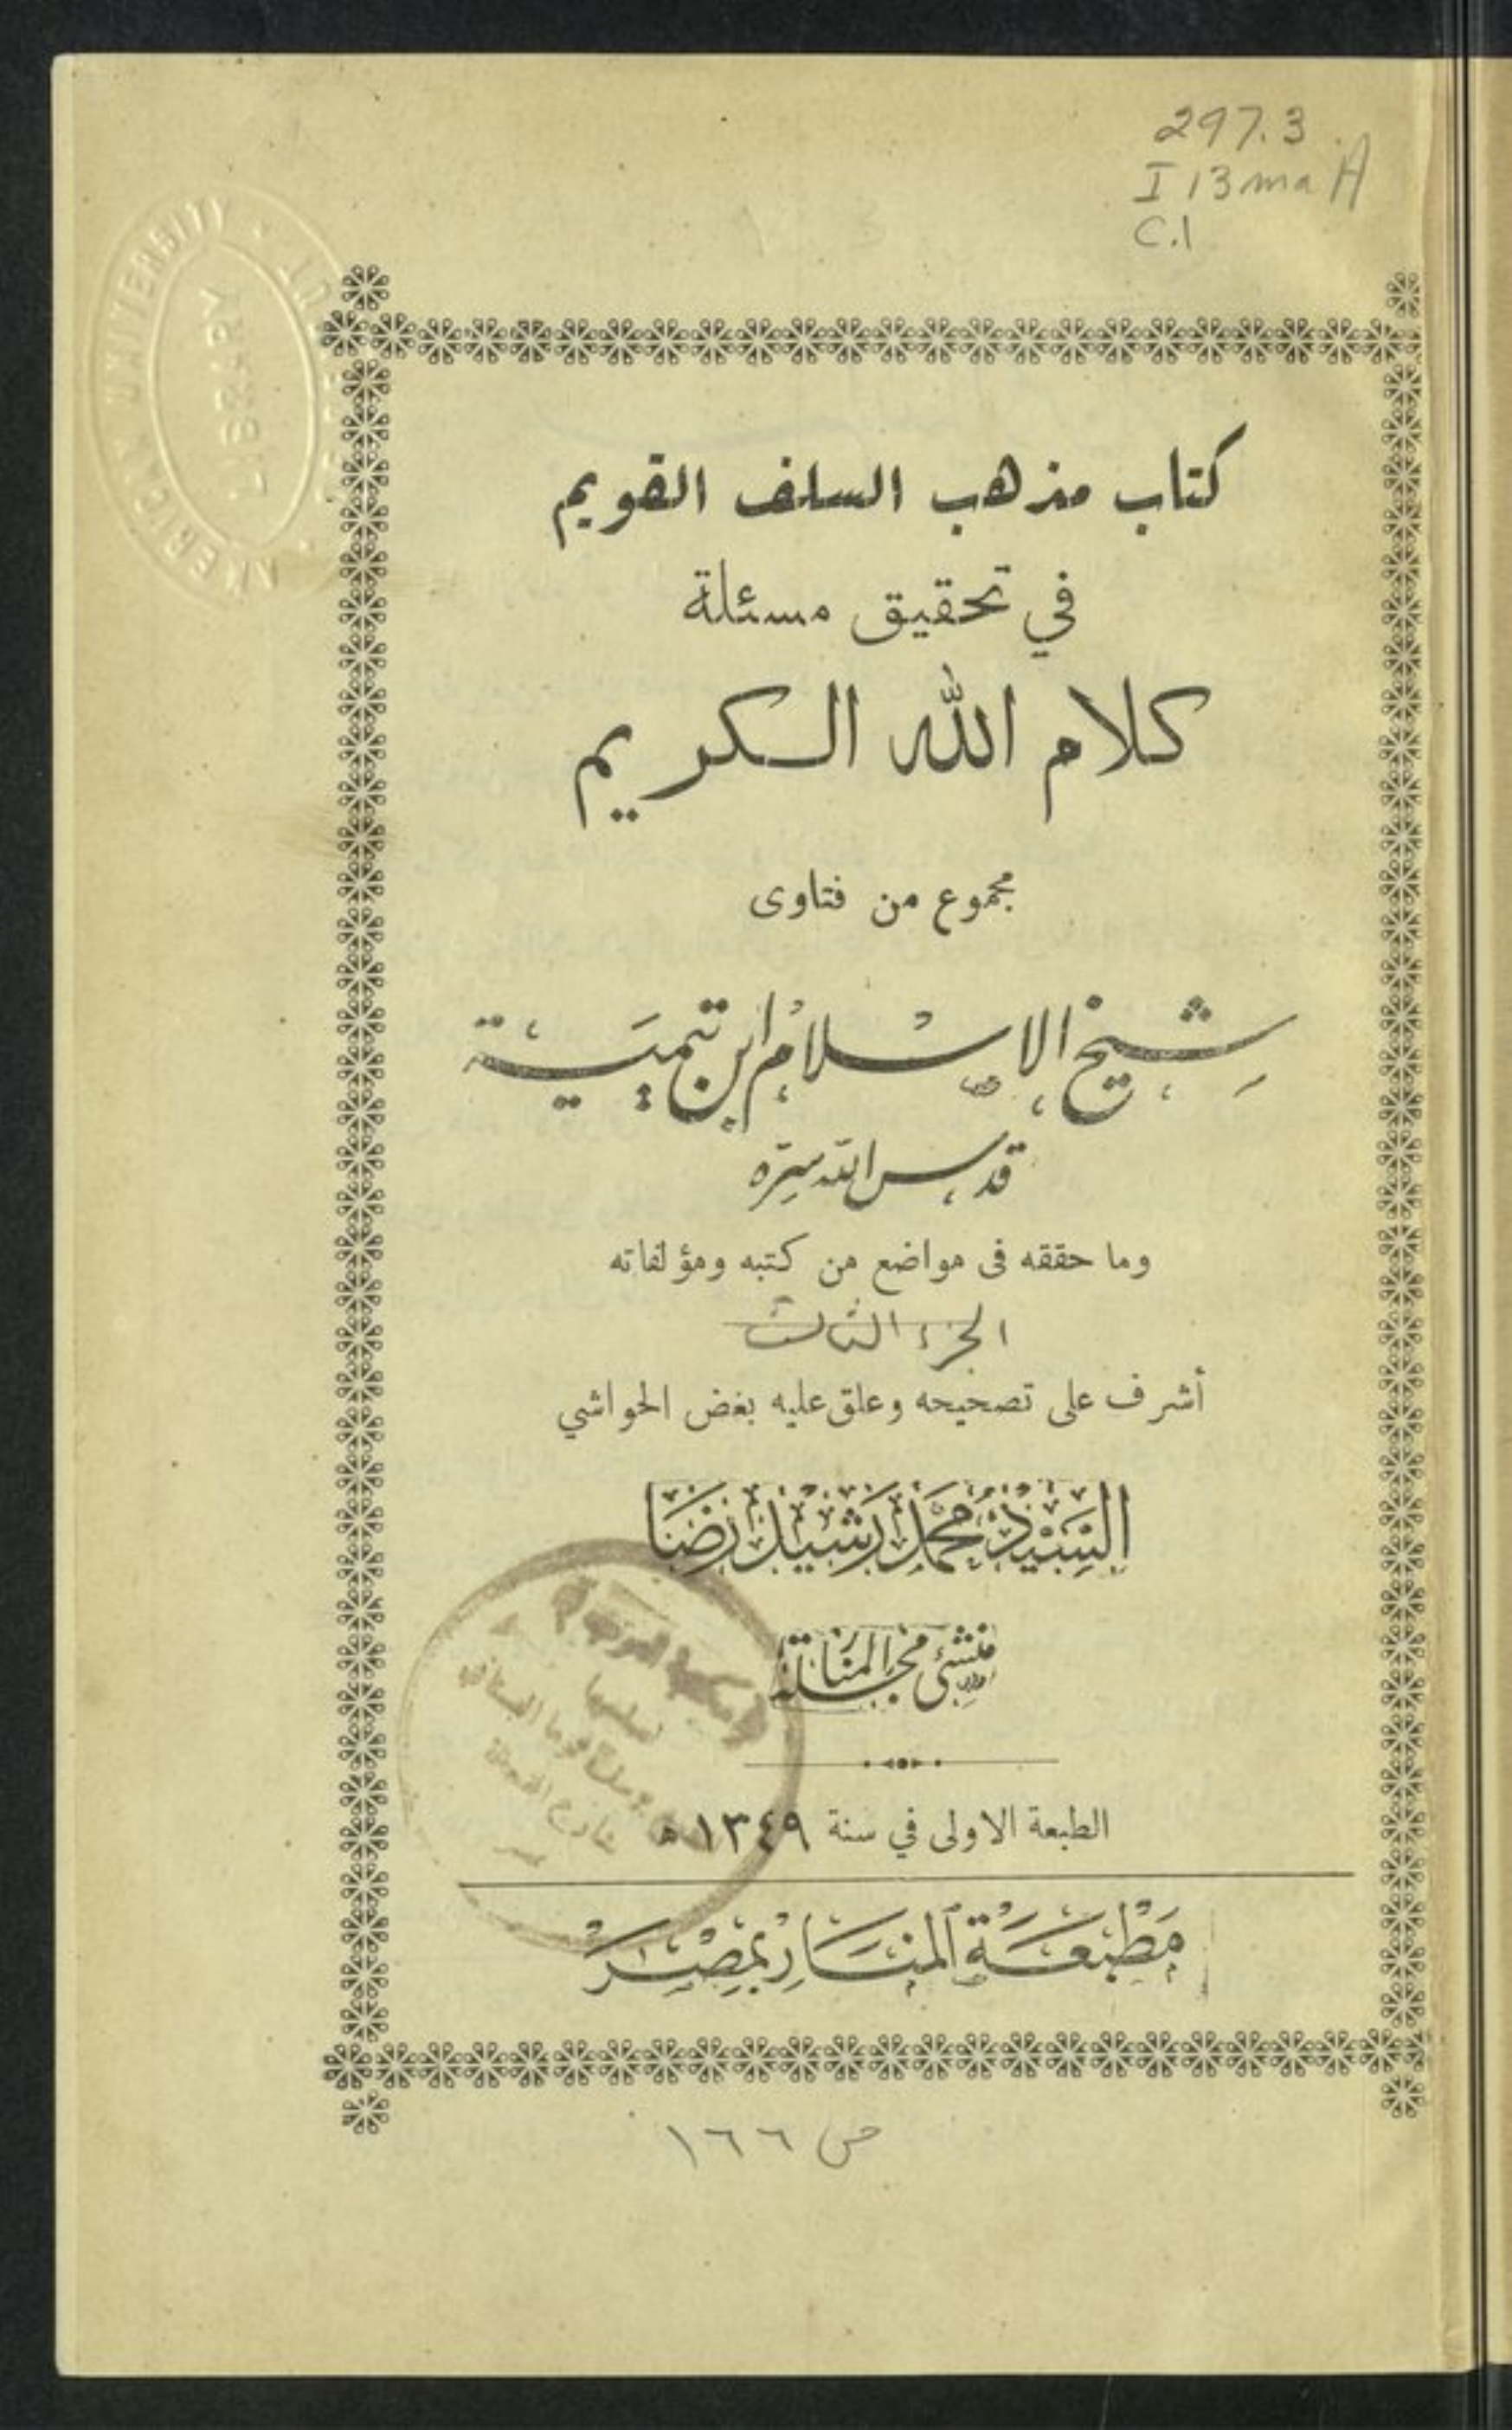 297.3
I 13 ma A
C.1
AMERICAN UNIVERSITY
LIBRARY
كتاب مذهب السلف القويم
في تحقيق مسئلة
كلام الله الكريم
مجموع من فتاوى
شيخ الإسلام ابن تيمية
قدس الله سره
وما حققه فى مواضع من كتبه ومؤلفاته
الجزء الثالث
أشرف على تصحيحه وعلق عليه بعض الحواشي
السيد محمد رشيد رضا
منشئ مجلة المنار
الطبعة الاولى في سنة ١٣٤٩ ه
مطبعة المنار بمصر
ص ١٦٦